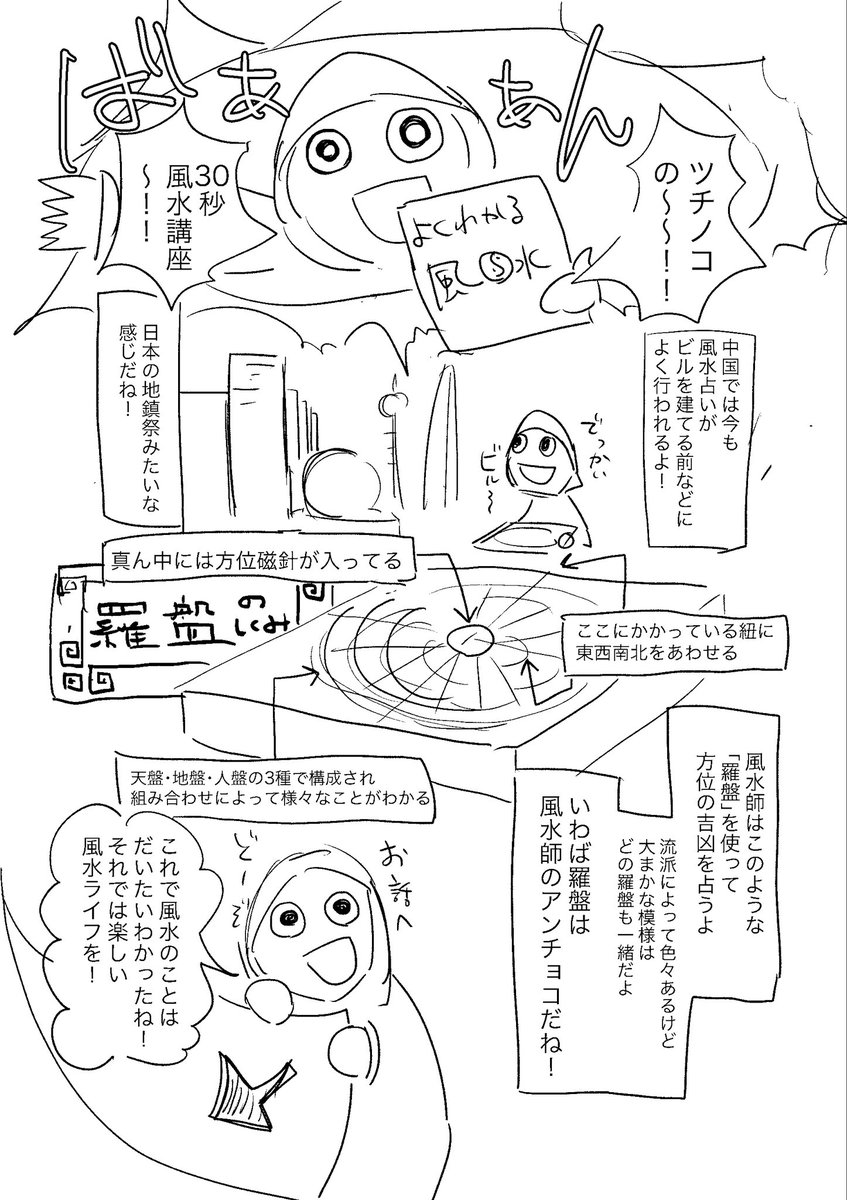 ばぁぁん
ツチノコ
の～～！！
30秒
風水講座
～！！
よくわかる
風水
中国では今も
風水占いが
ビルを建てる前などに
よく行われるよ！
でっかい
ビル〜
日本の地鎮祭みたいな
感じだね！
真ん中には方位磁針が入ってる
羅盤の
しくみ
ここにかかっている紐に
東西南北をあわせる
天盤・地盤・人盤の3種で構成され
組み合わせによって様々なことがわかる
風水師はこのような
「羅盤」を使って
方位の吉凶を占うよ
流派によって色々あるけど
大まかな模様は
どの羅盤も一緒だよ
いわば羅盤は
風水師のアンチョコだね！
お話へ
どーぞー
これで風水のことは
だいたいわかったね！
それでは楽しい
風水ライフを！